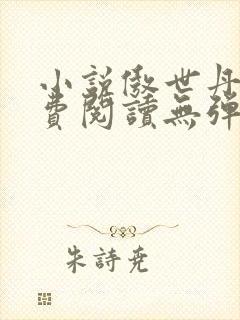 小說傲世丹
費閱讀無彈
朱詩堯